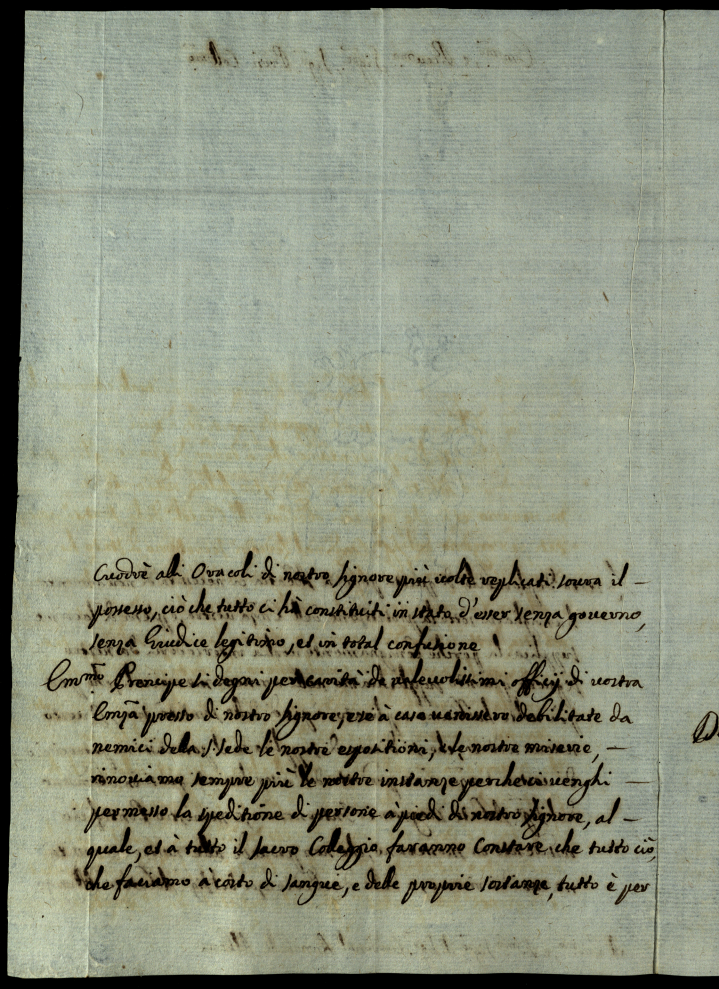 Creder alli Oracoli di nostro Signore più volte replicati soura il –
possesso, ciò che tutto ci hà constituiti in stato d'esser senza governo,
senza Giudice legitimo, et in total confusione
Em.mo Prencipe si degni per carità de valevolissimi officij di vostra
Em.za presso di nostro Signore, e se à caso venissero debilitate da
nemici della S. Sede le nostre espositioni, e le nostre miserie, –
rinoviamo sempre più le nostre instanze perche ci venghi –
permesso la speditione di persone à piedi di nostro Signore, al –
quale, et à tutto il sacro Collaggio faranno Constare che tutto ciò,
che faciamo à costo di sangue, e delle proprie sostanze, tutto è per